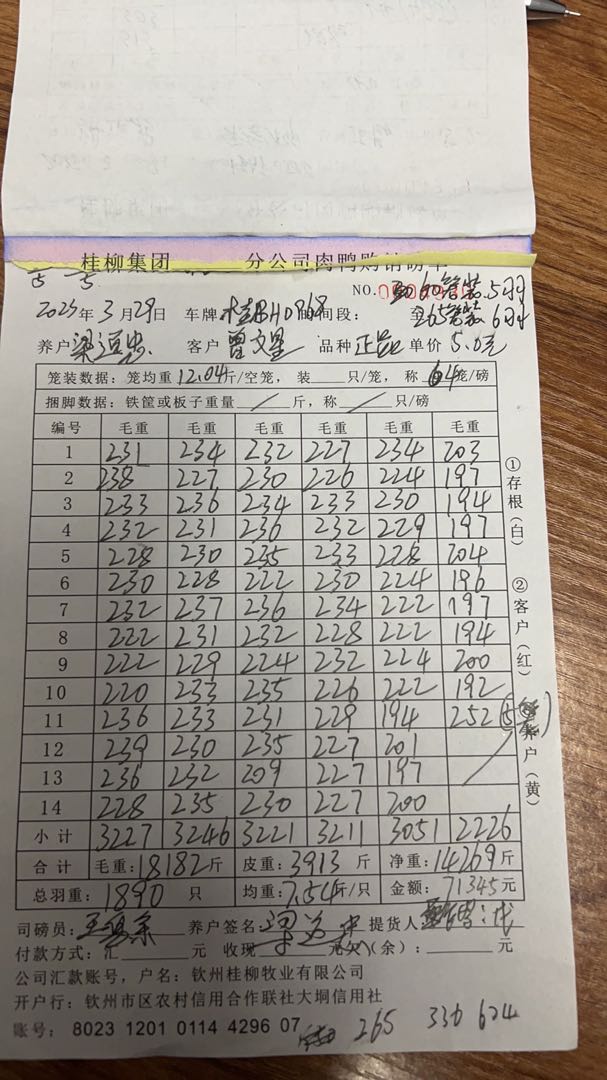 桂柳集团 分公司肉鸭购销
NO.
2025年3月29日 车牌 桂 时间段:
265笼装6羽
养户 梁 客户 曾文星 品种 正品 单价 5.0元
笼装数据:笼均重12.04斤/空笼,装 只/笼,称 笼/磅
捆脚数据:铁筐或板子重量 / 斤,称 / 只/磅
编号 毛重 毛重 毛重 毛重 毛重 毛重
1 231 234 232 227 234 203
2 238 227 230 226 224 197
3 233 236 234 233 230 194
4 232 231 236 232 229 197
5 228 230 235 233 228 204
6 230 228 222 230 224 196
7 232 237 236 234 222 197
8 222 231 232 228 222 194
9 222 229 224 232 224 200
10 220 233 235 226 222 192
11 236 233 231 229 194 252
12 239 230 235 227 201
13 236 232 209 227 197
14 228 235 230 227 200
小计 3227 3246 3221 3211 3051 2226
合计 毛重:18182斤 皮重:3913斤 净重:14269斤
总羽重:1890只 均重:7.54斤/只 金额:71345元
①存根(白)
②客户(红)
养户(黄)
司磅员: 养户签名: 提货人:
付款方式:汇 元 收现 元欠(余): 元
公司汇款账号,户名:钦州桂柳牧业有限公司
开户行:钦州市区农村信用合作联社大垌信用社
账号:8023 1201 0114 4296 07
265 336 624